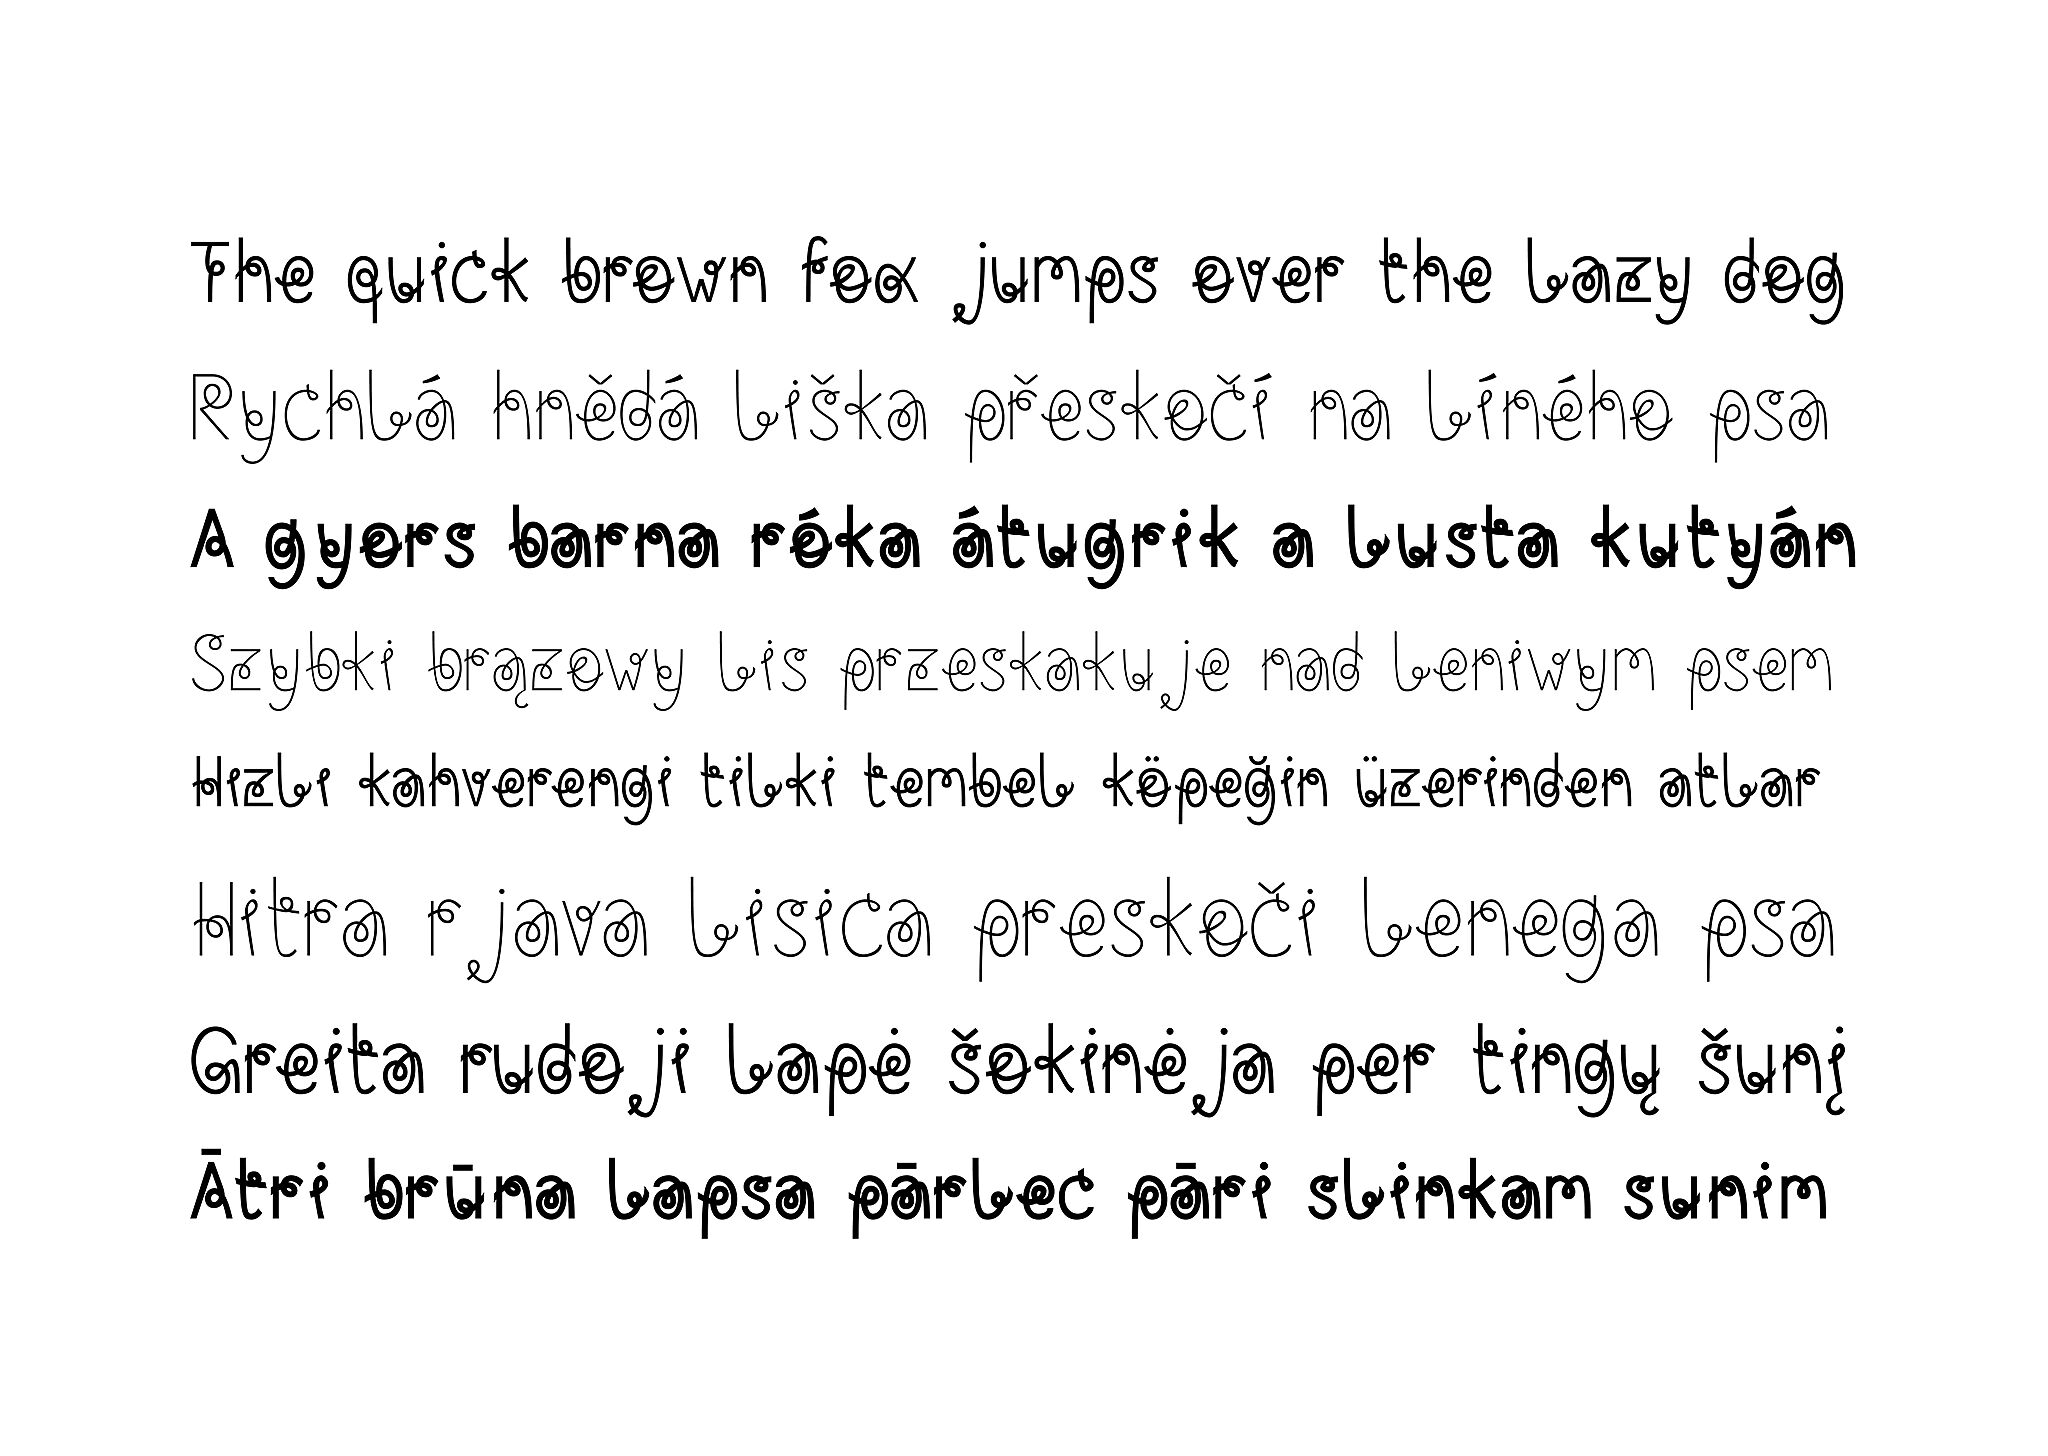 The quick brown fox jumps over the lazy dog
Rychlá hnědá liška přeskočí na líného psa
A gyors barna róka átugrik a lusta kutyán
Szybki brązowy lis przeskakuje nad leniwym psem
Hızlı kahverengi tilki tembel köpeğin üzerinden atlar
Hitra rjava lisica preskoči lenega psa
Greita rudoji lapė šokinėja per tingų šunį
Ātri brūna lapsa pārlec pāri slinkam sunim